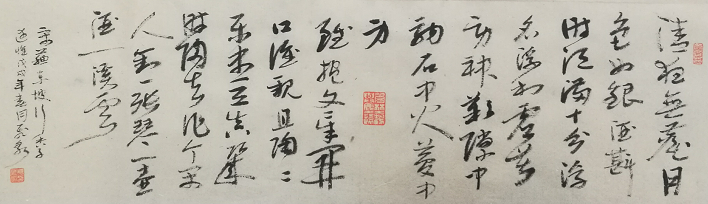 清夜無塵月
色如銀酒斟
時須滿十分浮
名浮利虛苦
勞神歎隙中
駒石中火夢中
身
雖抱文章開
口誰親且陶々
樂盡天真幾
時歸去作個閑
人對一張琴一壺
酒一溪雲
宋蘇東坡行香子
戊戌年春月